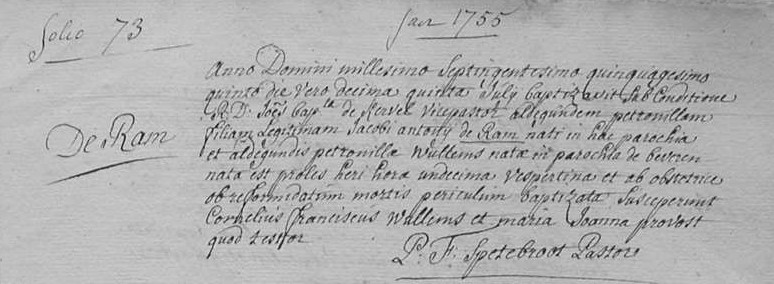 folio 73
Jaer 1755
Anno Domini millesimo Septingentesimo quinquagesimo
quinto die vero decima quinta Julij baptizavit Sub Conditione
R: D: Joẽs Bapla de Kervel vicepastor aldegundem petronillam
filiam Legitimam Jacobi antonij de Ram nati in hac parochia
De Ram
et aldegundis petronillæ Wullems natæ in parochia de beveren
nata est proles heri hora undecima vespertina et ab obstetrice
ob reformidatum mortis periculum baptizata Susceperunt
Cornelius franciscus Wullems et maria Joanna provost
quod testor
P: F: Spetebroot Pastor